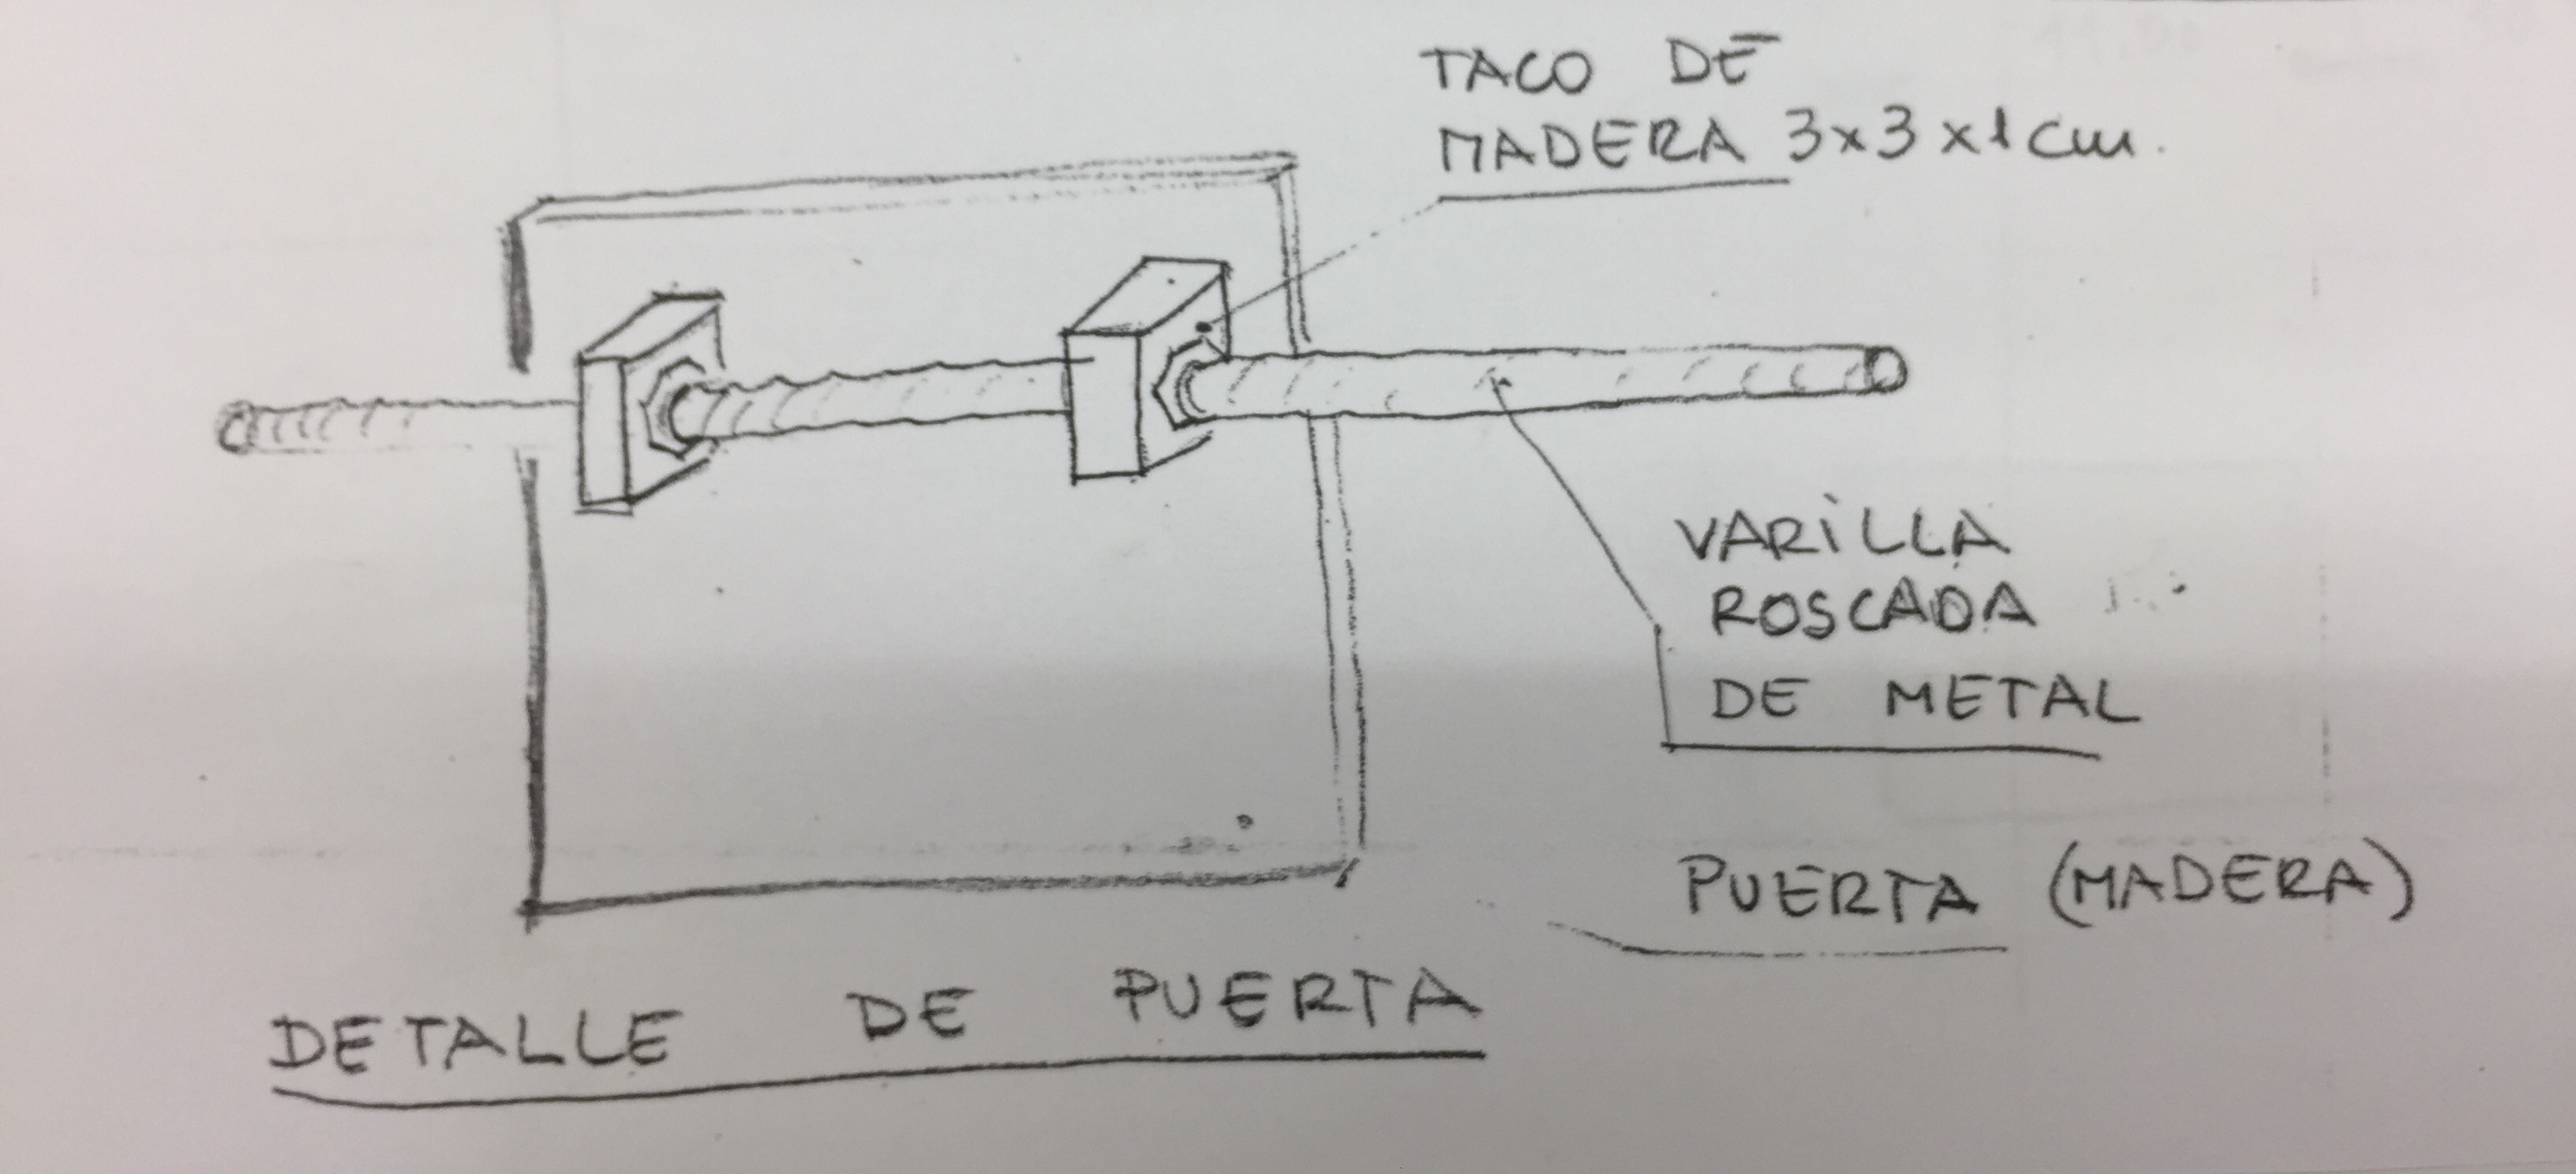 TACO DE
MADERA 3x3x1cm.
VARiLLA
ROSCADA
DE METAL
PUERTA (MADERA)
DETALLE DE PUERTA